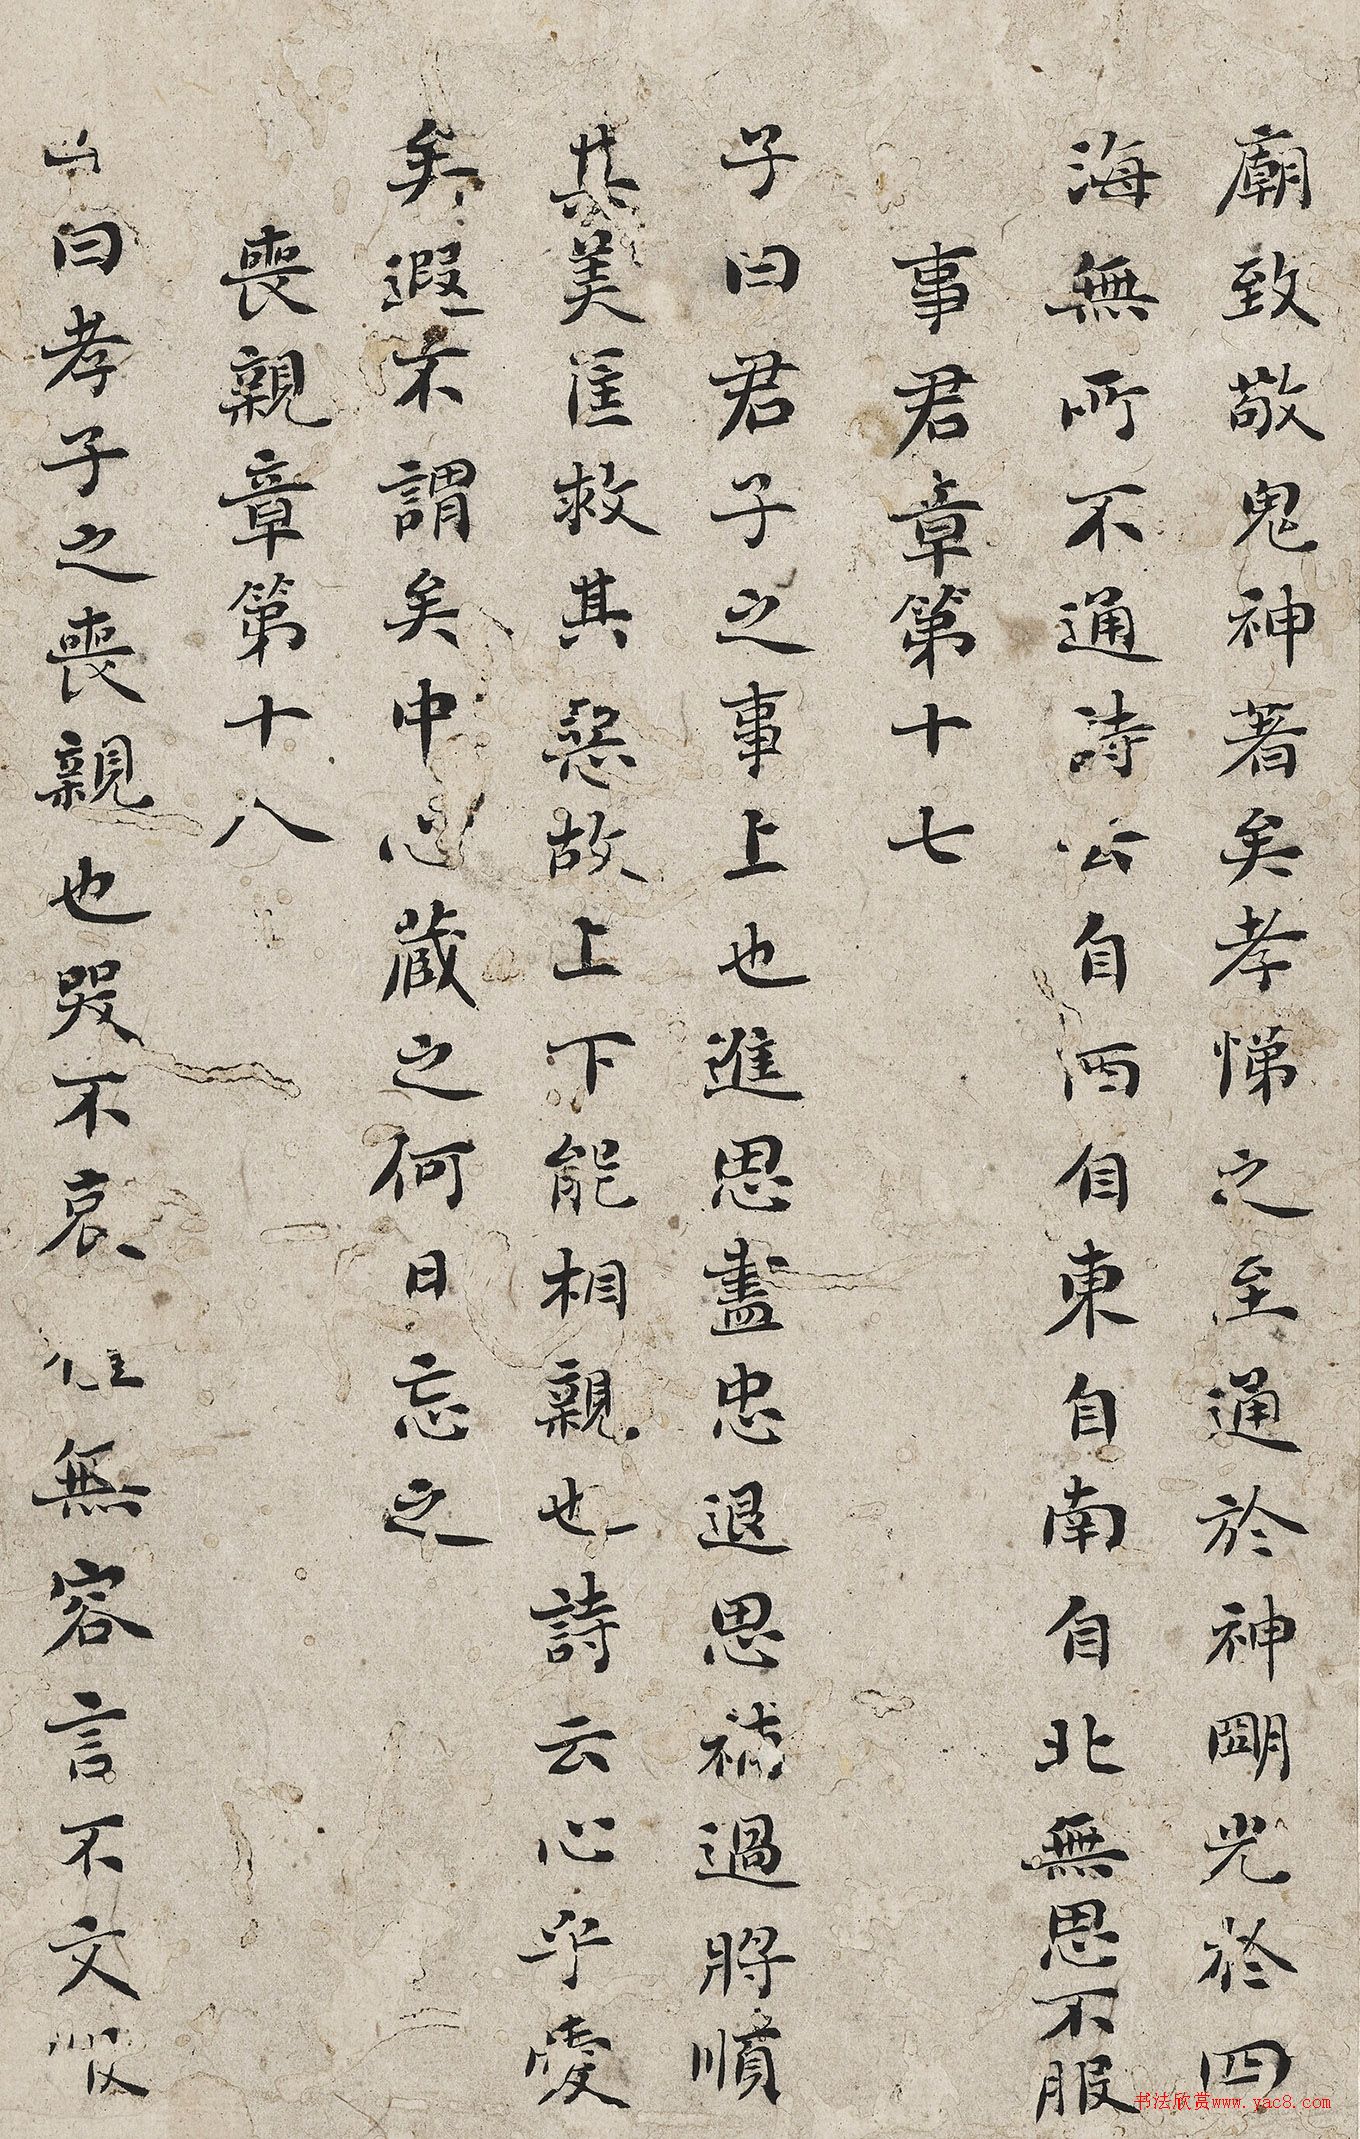 廟致敬鬼神著矣孝悌之至通於神明光於四
海無所不通詩云自西自東自南自北無思不服
事君章第十七
子曰君子之事上也進思盡忠退思補過將順
其美匡救其惡故上下能相親也詩云心乎愛
矣遐不謂矣中心藏之何日忘之
喪親章第十八
曰孝子之喪親也哭不哀無容言不文服
书法欣赏www.yac8.com